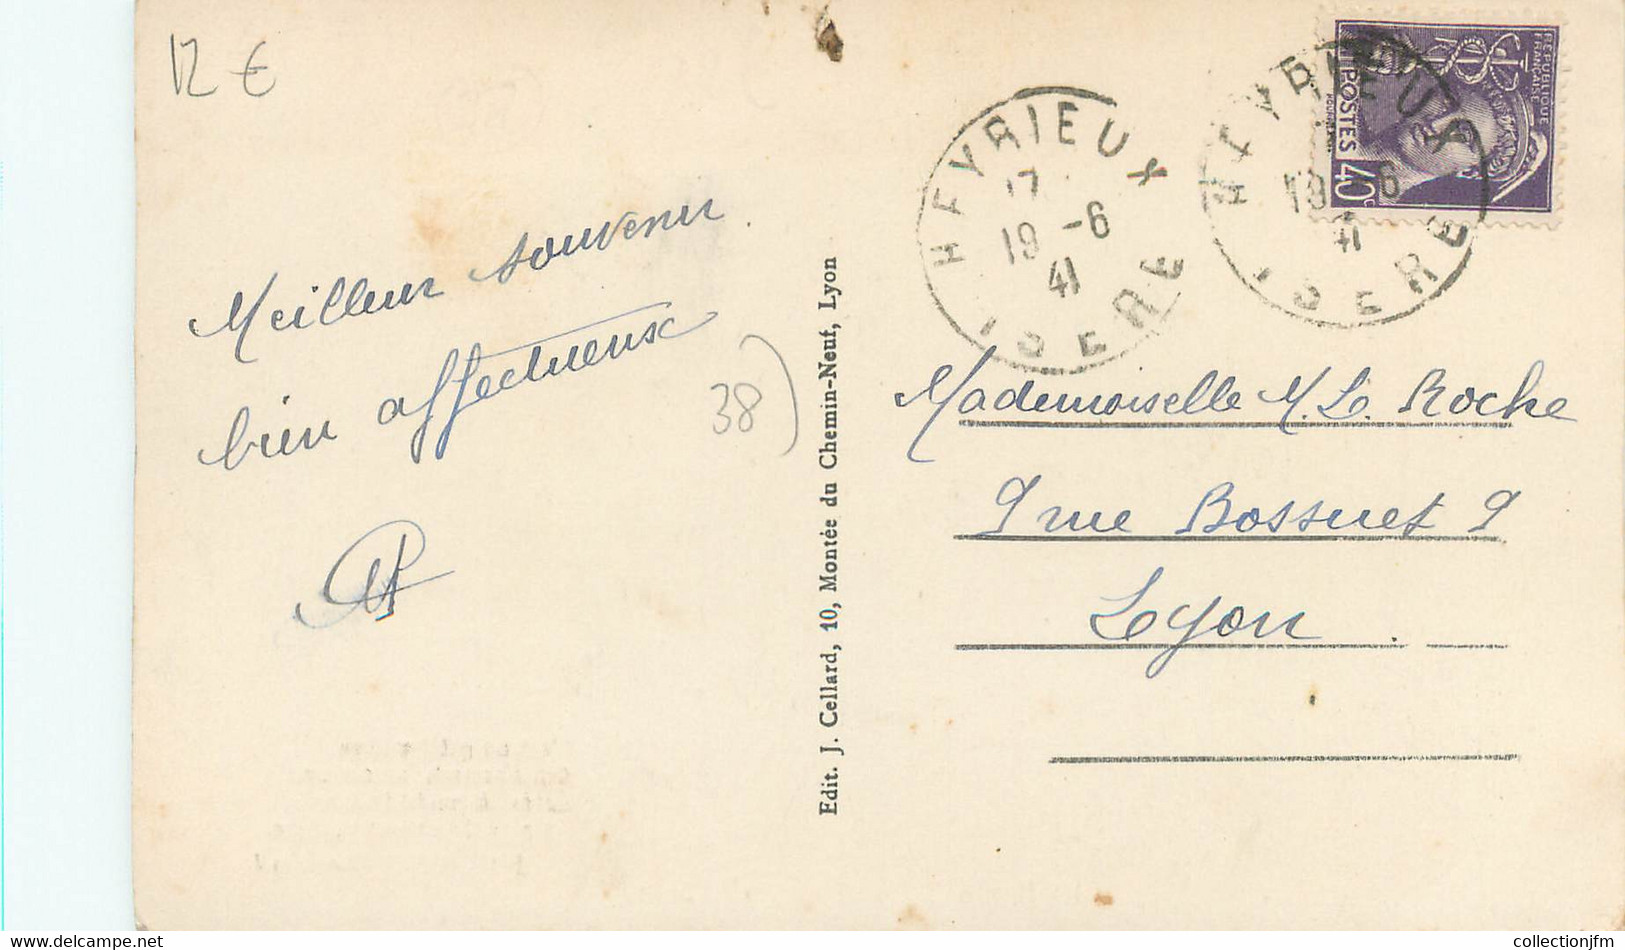 12 €
Meilleur souvenir
bien affectueux
38)
Edit. J. Cellard, 10, Montée du Chemin-Neuf, Lyon
HEYRIEUX
17
19 -6
41
ISERE
HEYRIEUX
19 -6
41
ISERE
RÉPUBLIQUE
FRANÇAISE
POSTES
40c
Mademoiselle M. L. Roche
9 rue Bossuet 9
Lyon
collectionjfm